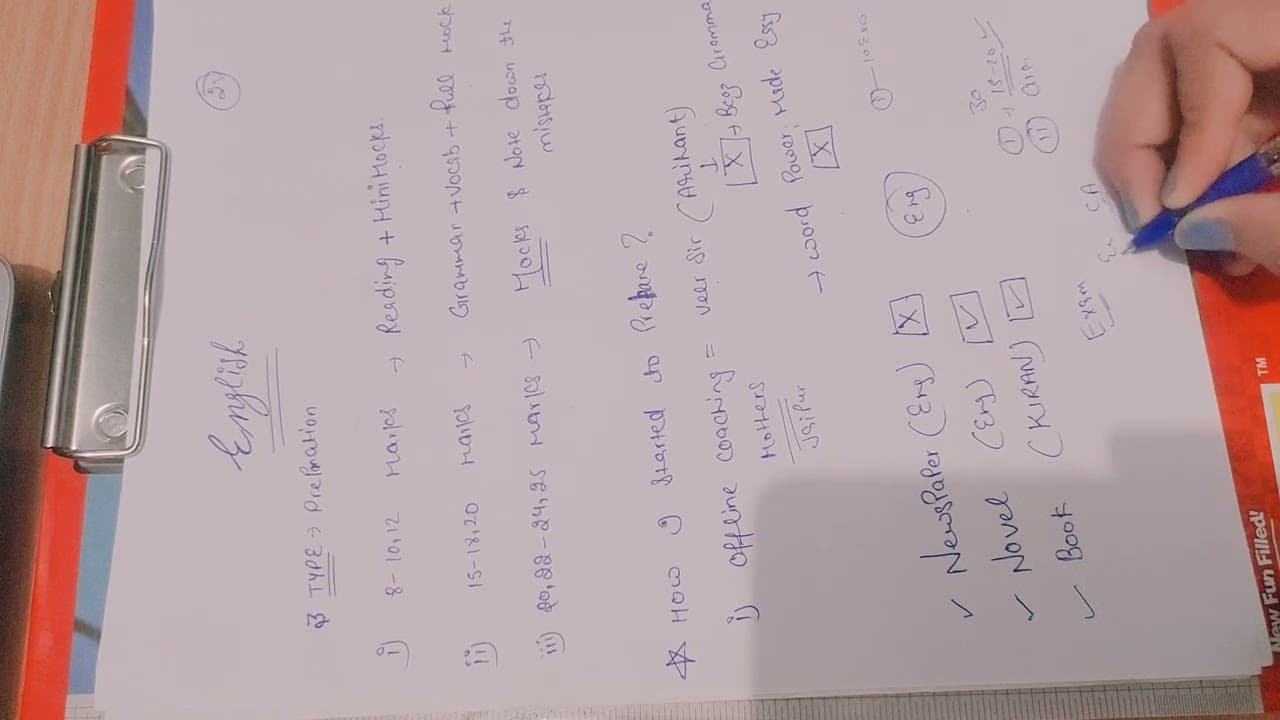 English
25
TYPE → Preparation
i) 8-10,12 Marks → Reading + Mini Mocks.
ii) 15-18,20 Marks → Grammar + Vocab + full Mock
iii) 20,22-24,25 Marks → Mocks & Note down the mistakes
How I started to Prepare?
i) Offline coaching = Veer Sir (Arihant)
X → Grammar
Mothers
Jaipur
→ Word Power Made Easy
X
✓ NewsPaper (Eng) X
Eng
✓ Novel (Eng) ✓
✓ Book (KIRAN) ✓
30
i → 18-20 ✓
ii
Exam
New Fun Filled!
TM